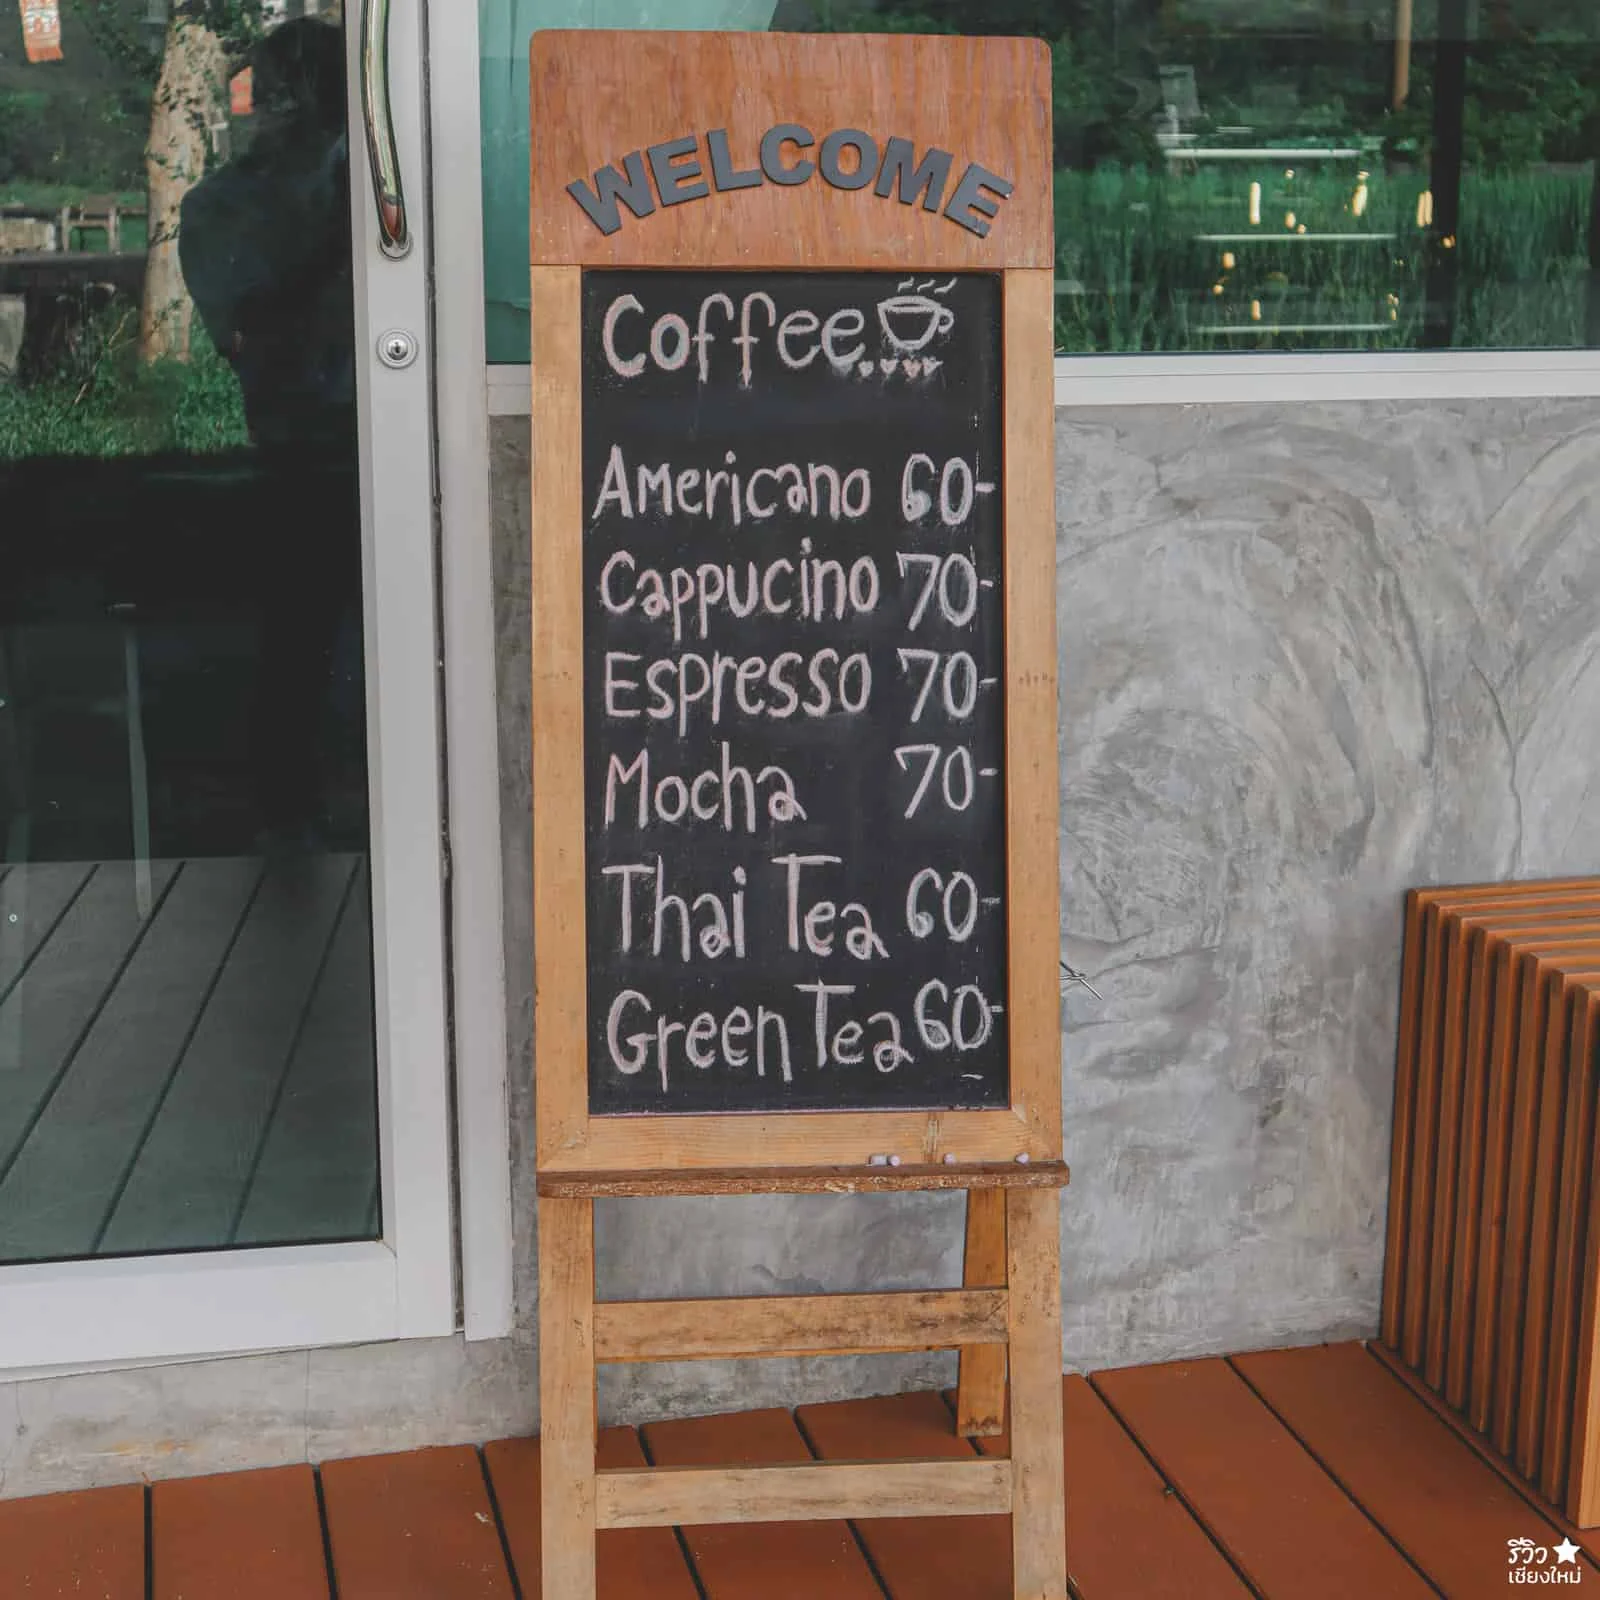 WELCOME
Coffee
Americano 60-
Cappucino 70-
Espresso 70-
Mocha 70-
Thai Tea 60-
Green Tea 60-
รีวิว
เชียงใหม่